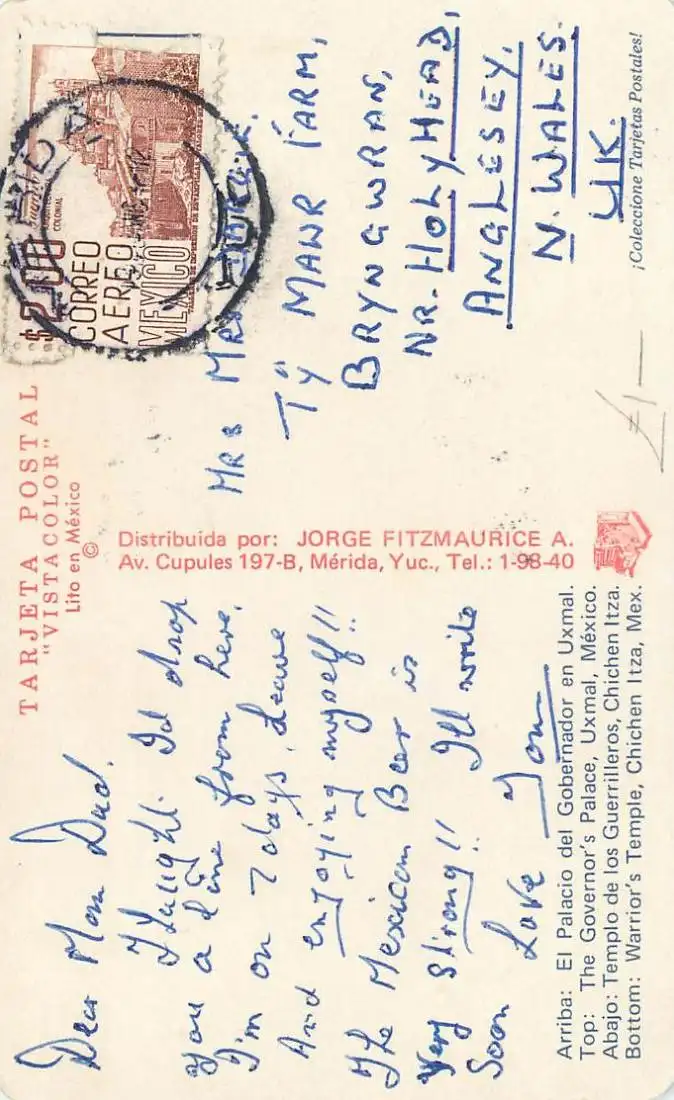 TARJETA POSTAL
"VISTACOLOR"
Lito en México
©
Dear Mom Dad.
I thought I'd drop
you a line from here.
I'm on 7 days Leave
And enjoying myself!!
The Mexican Beer is
very strong!! I'll write
Soon
Love Tom
Arriba: El Palacio del Gobernador en Uxmal.
Top: The Governor's Palace, Uxmal, México.
Abajo: Templo de los Guerrilleros, Chichen Itza.
Bottom: Warrior's Temple, Chichen Itza, Mex.
Distribuida por: JORGE FITZMAURICE A.
Av. Cupules 197-B, Mérida, Yuc., Tel.: 1-98-40
$2.00
CORREO
AEREO
MEXICO
COLONIAL
MR & MRS
TŶ MAWR FARM,
BRYNGWRAN,
NR. HOLYHEAD,
ANGLESEY.
N. WALES.
UK.
£1—
¡Coleccione Tarjetas Postales!